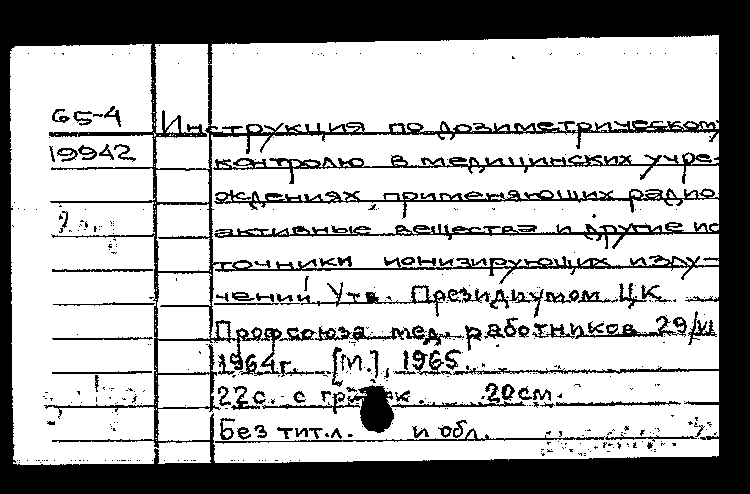 65-4
19942
Инструкция по дозиметрическому
контролю в медицинских учре-
ждениях, применяющих радио-
активные вещества и другие ис
точники ионизирующих излу-
чений. Утв. Президиумом ЦК
Профсоюза мед. работников 29/VI
1964г. [М.], 1965.
22с. с 20см.
Без тит.л. и обл.